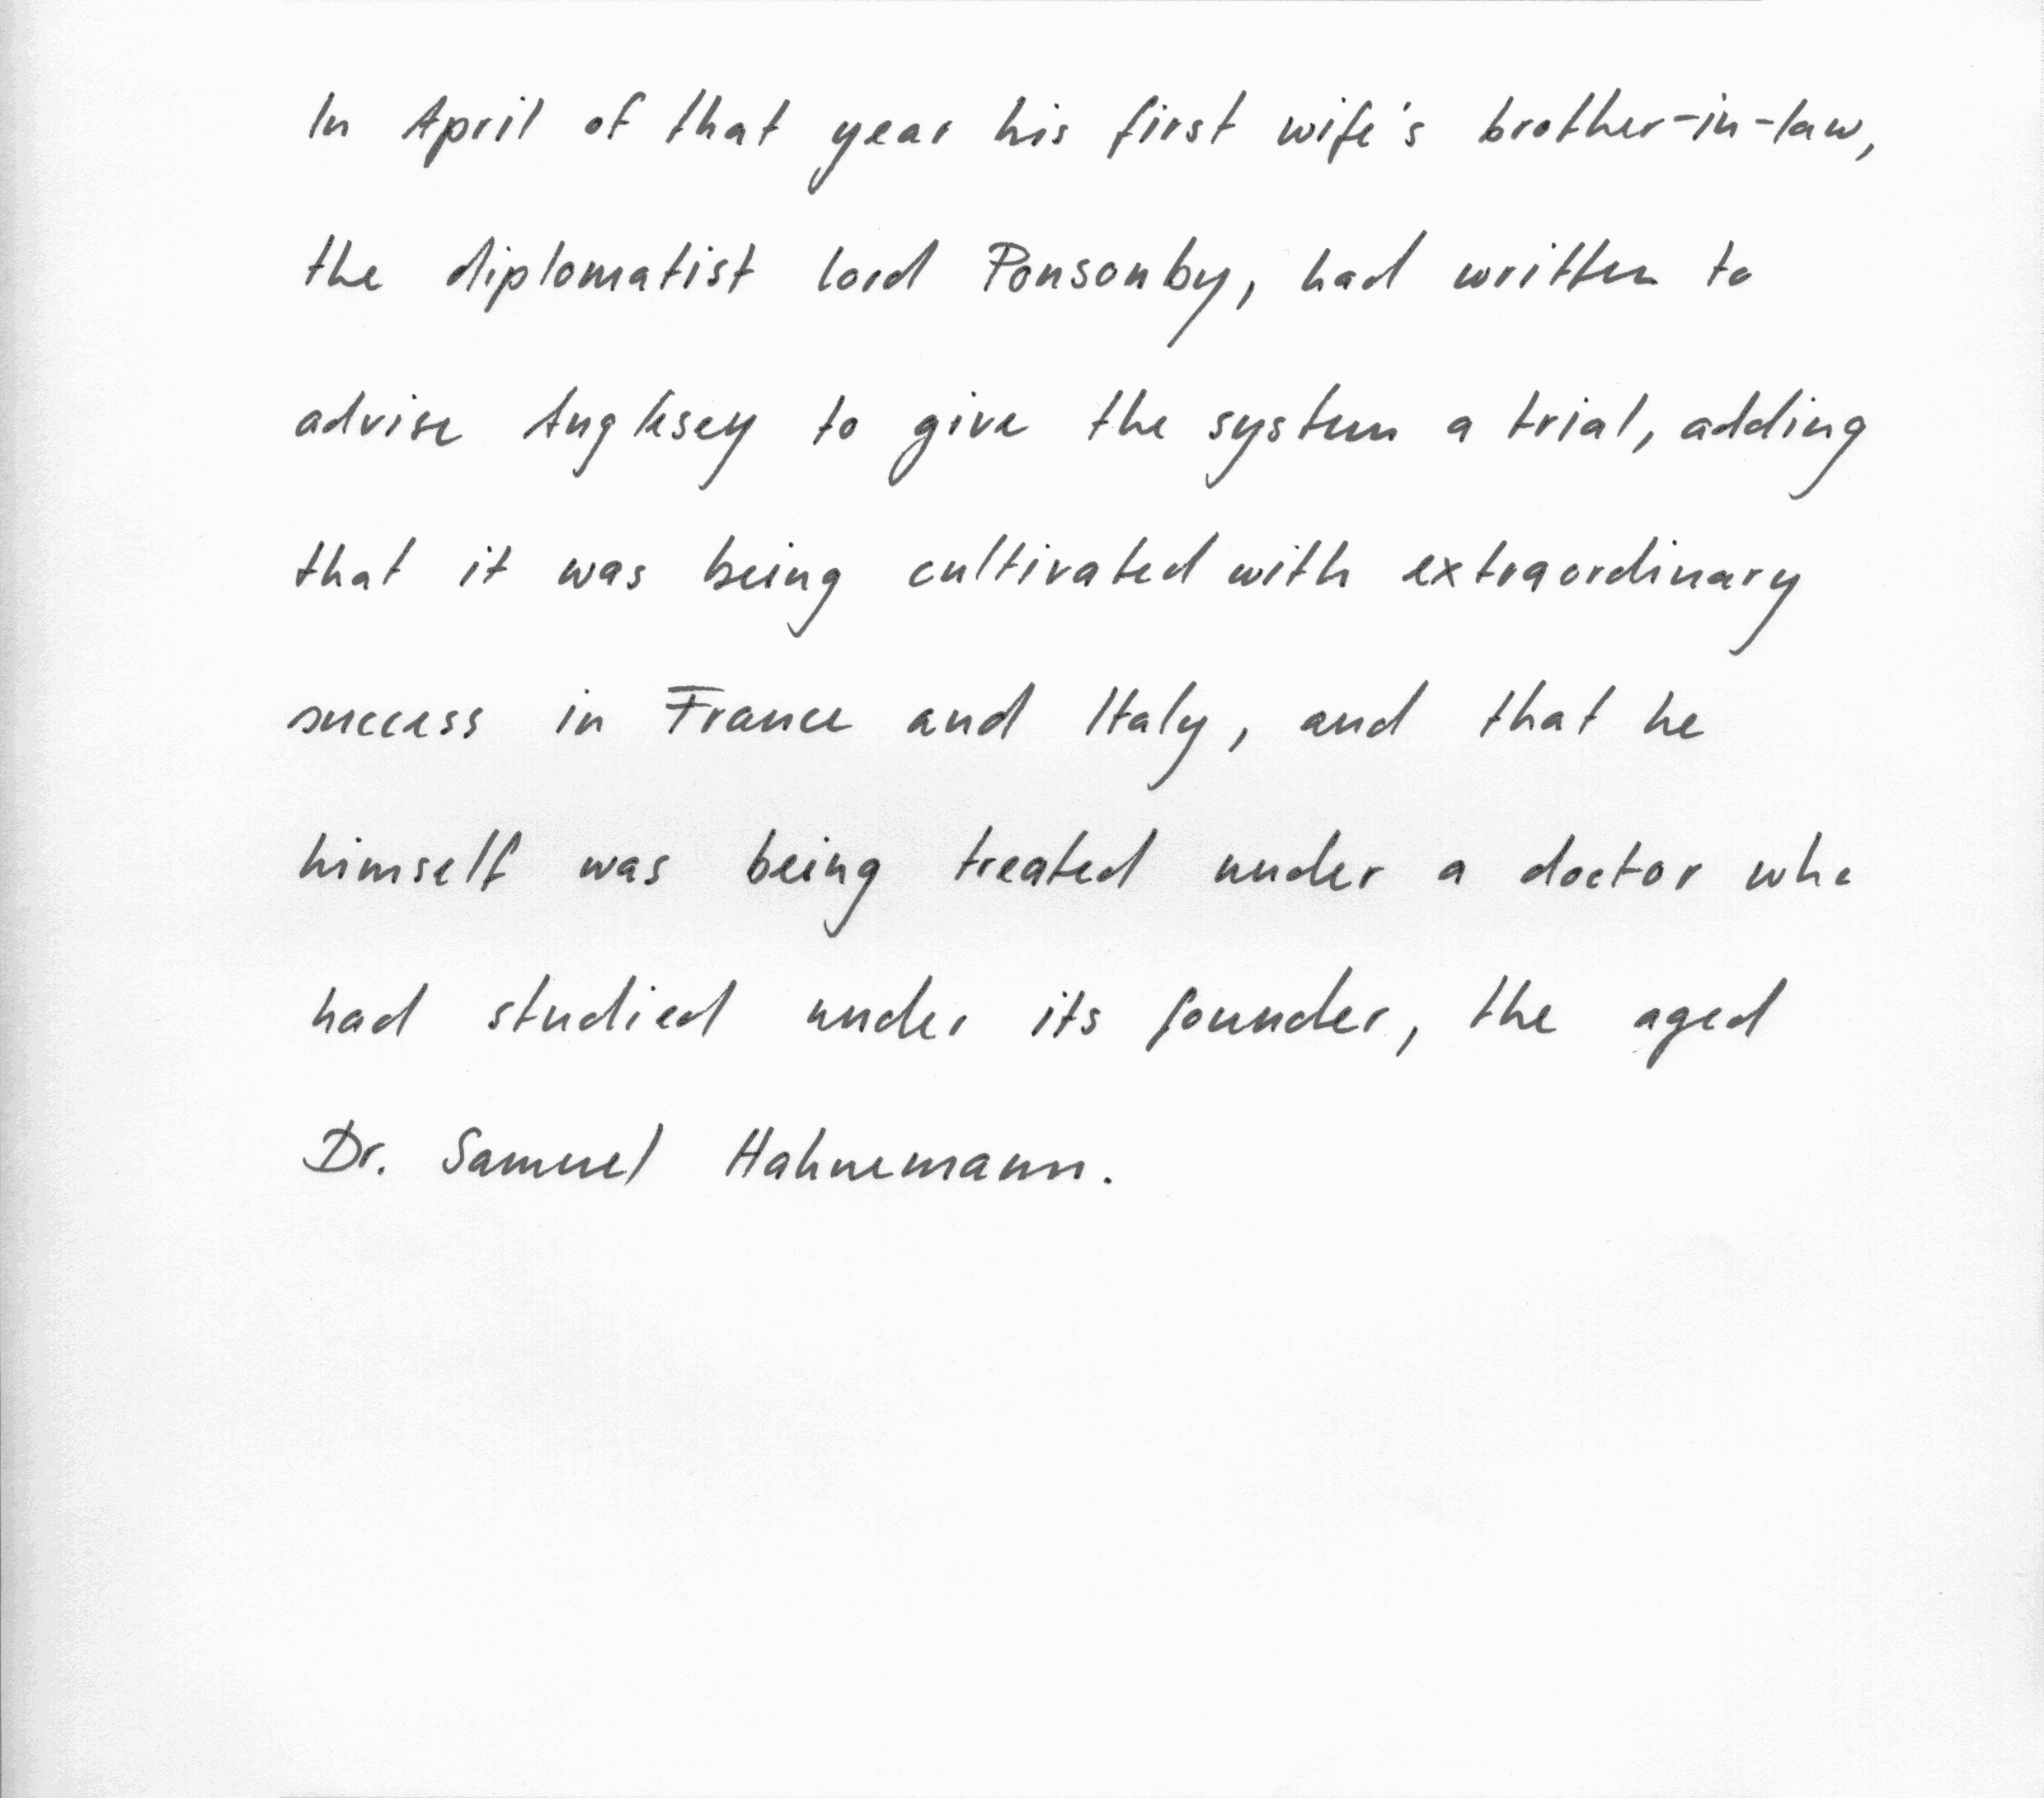 In April of that year his first wife's brother-in-law,
the diplomatist lord Ponsonby, had written to
advise Anglesey to give the system a trial, adding
that it was being cultivated with extraordinary
success in France and Italy, and that he
himself was being treated under a doctor who
had studied under its founder, the aged
Dr. Samuel Hahnemann.